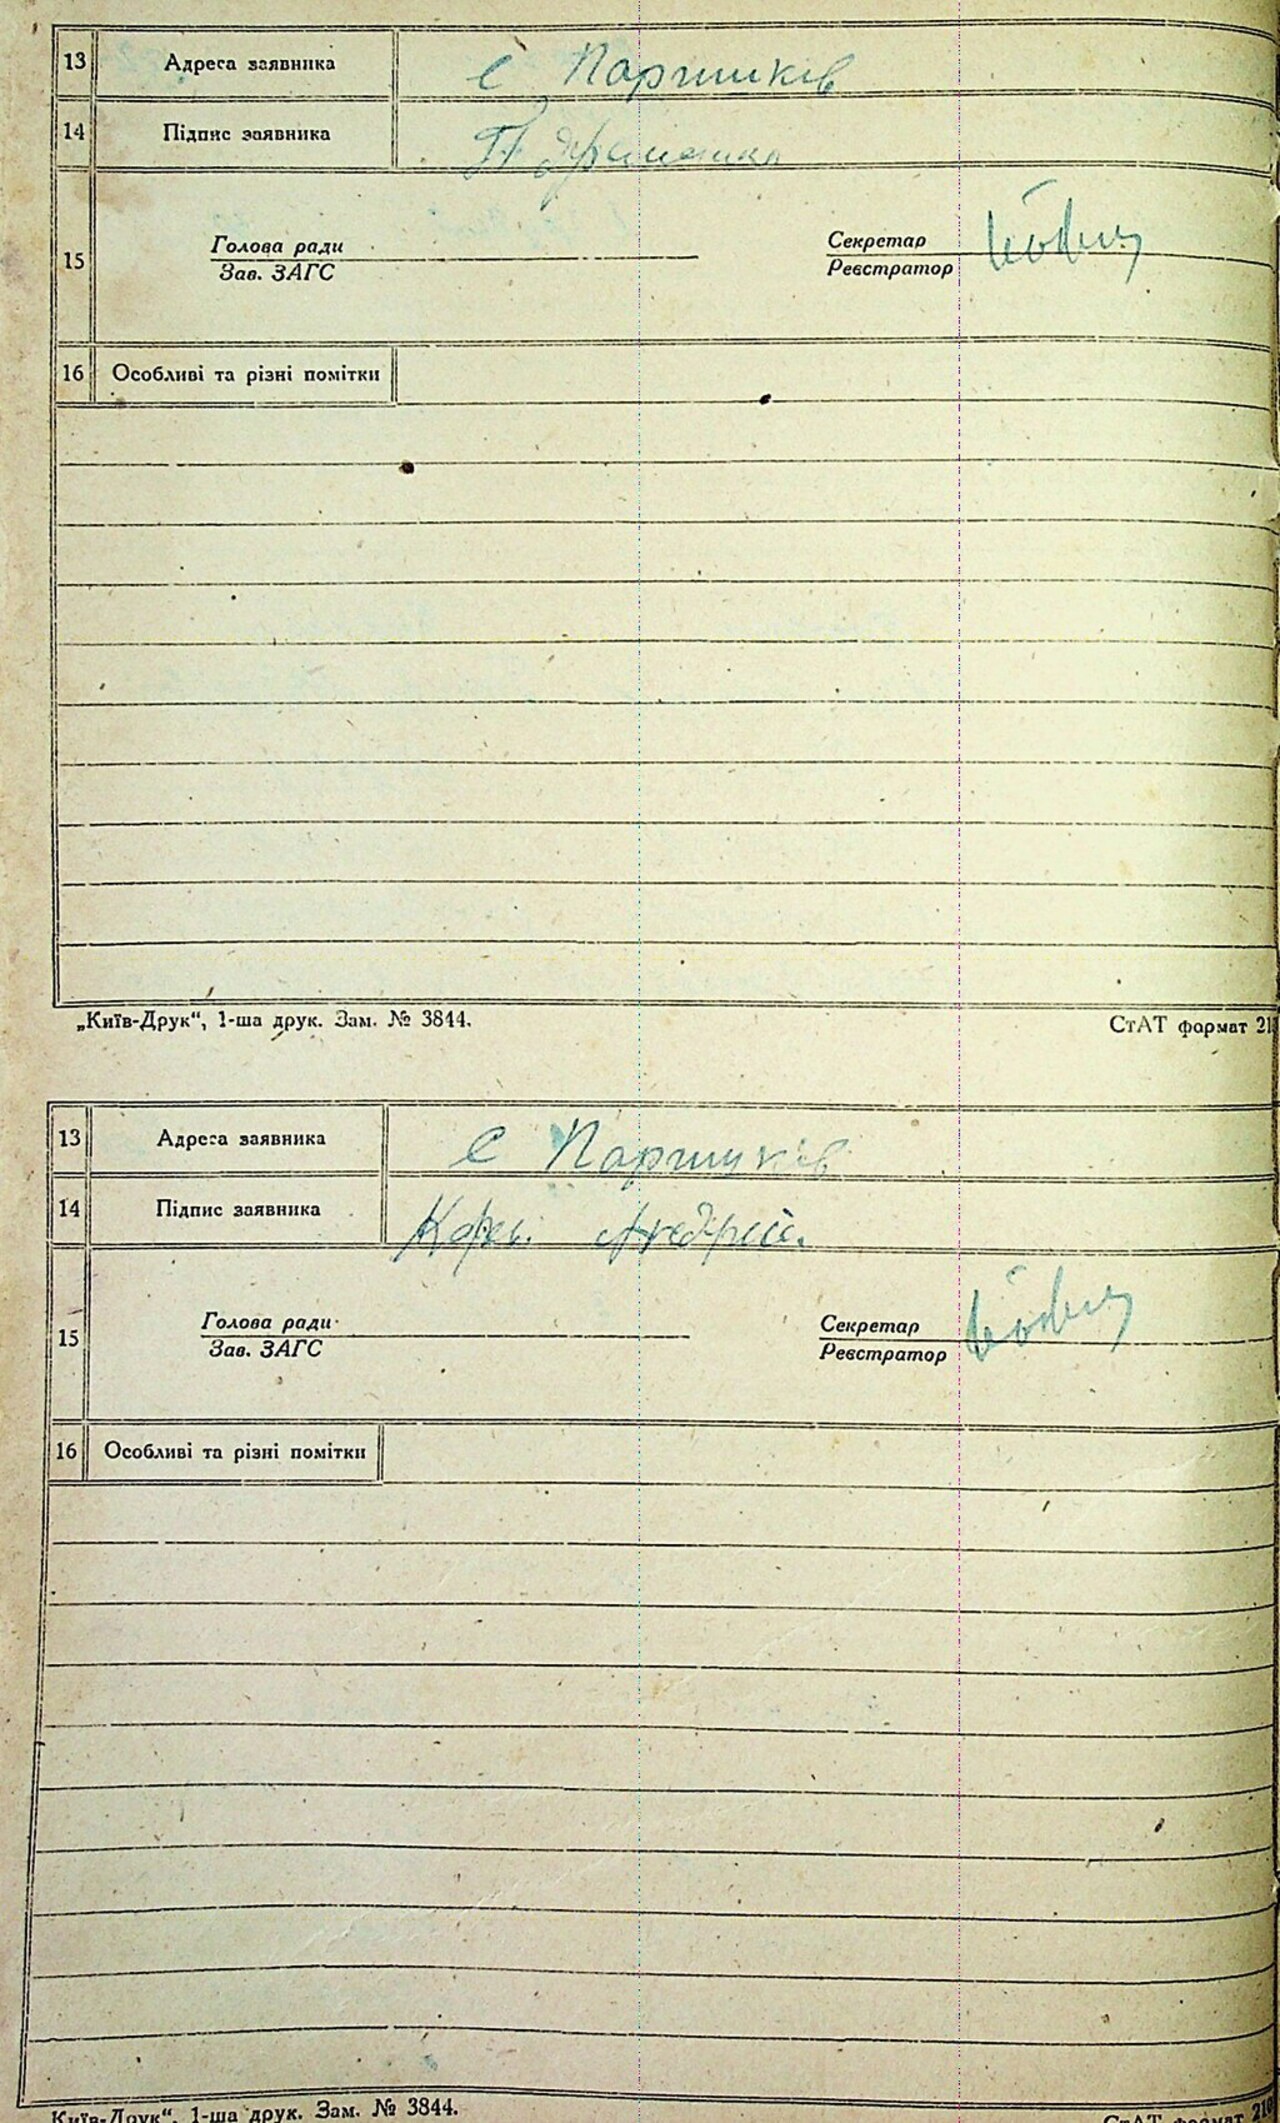 13 Адреса заявника с Паришків
14 Підпис заявника
15 Голова ради Секретар
Зав. ЗАГС Реєстратор
16 Особливі та різні помітки
„Київ-Друк“, 1-ша друк. Зам. № 3844. СтАТ формат 21
13 Адреса заявника с Паришків
14 Підпис заявника Андрій.
15 Голова ради Секретар
Зав. ЗАГС Реєстратор
16 Особливі та різні помітки
Київ-Друк“, 1-ша друк. Зам. № 3844. СтАТ формат 210